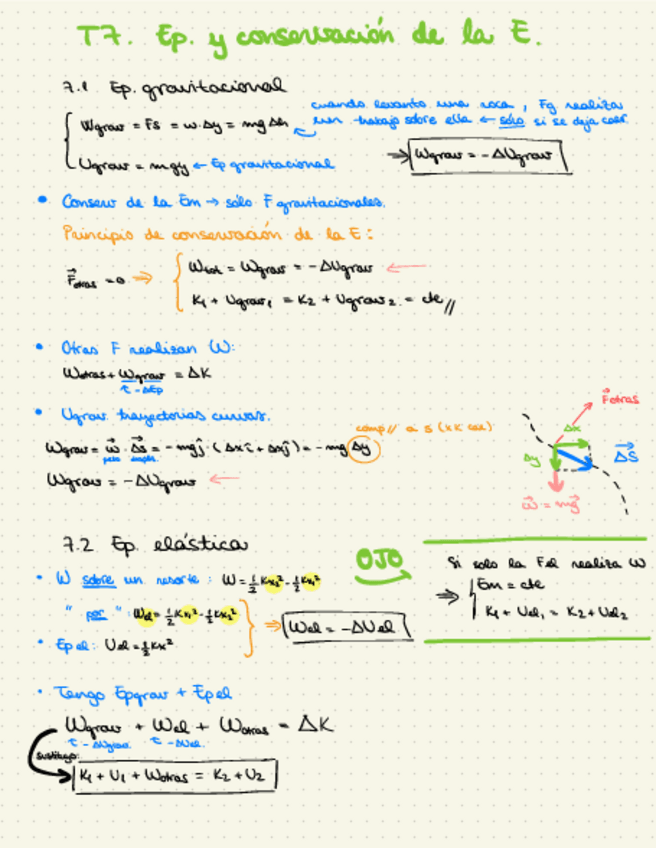 T7. Ep. y conservación de la E.
7.1 Ep. gravitacional
Wgrav = Fs = w·Δy = mgΔh
cuando levanto una roca, Fg realiza
un trabajo sobre ella ← sólo si se deja caer.
Ugrav = mgy ← Ep gravitacional
⇒ Wgrav = -ΔUgrav
• Conserv de la Em → sólo F gravitacionales.
Principio de conservación de la E:
F⃗otras = 0 ⇒
Wtot = Wgrav = -ΔUgrav ←
K₁ + Ugrav₁ = K₂ + Ugrav₂ = cte //
• Otras F realizan W:
Wotras + Wgrav = ΔK
↑ -ΔEp
• Ugrav trayectorias curvas.
comp// a s
Wgrav = w⃗ · Δs⃗ = -mgĵ · (Δxî + Δyĵ) = -mg Δy
Wgrav = -ΔUgrav ←
F⃗otras
Δx
Δy
ΔS⃗
w⃗ = mg⃗
7.2 Ep. elástica
• W sobre un resorte: W = ½kx₂² - ½kx₁²
" por ": Wel = ½kx₁² - ½kx₂²
• Ep el: Uel = ½kx²
⇒ Wel = -ΔUel
OJO
Si solo la Fel realiza W
⇒ Em = cte
K₁ + Uel₁ = K₂ + Uel₂
• Tengo Epgrav + Epel
Wgrav + Wel + Wotras = ΔK
↑ -ΔUgrav ↑ -ΔUel
sustituyo:
K₁ + U₁ + Wotras = K₂ + U₂